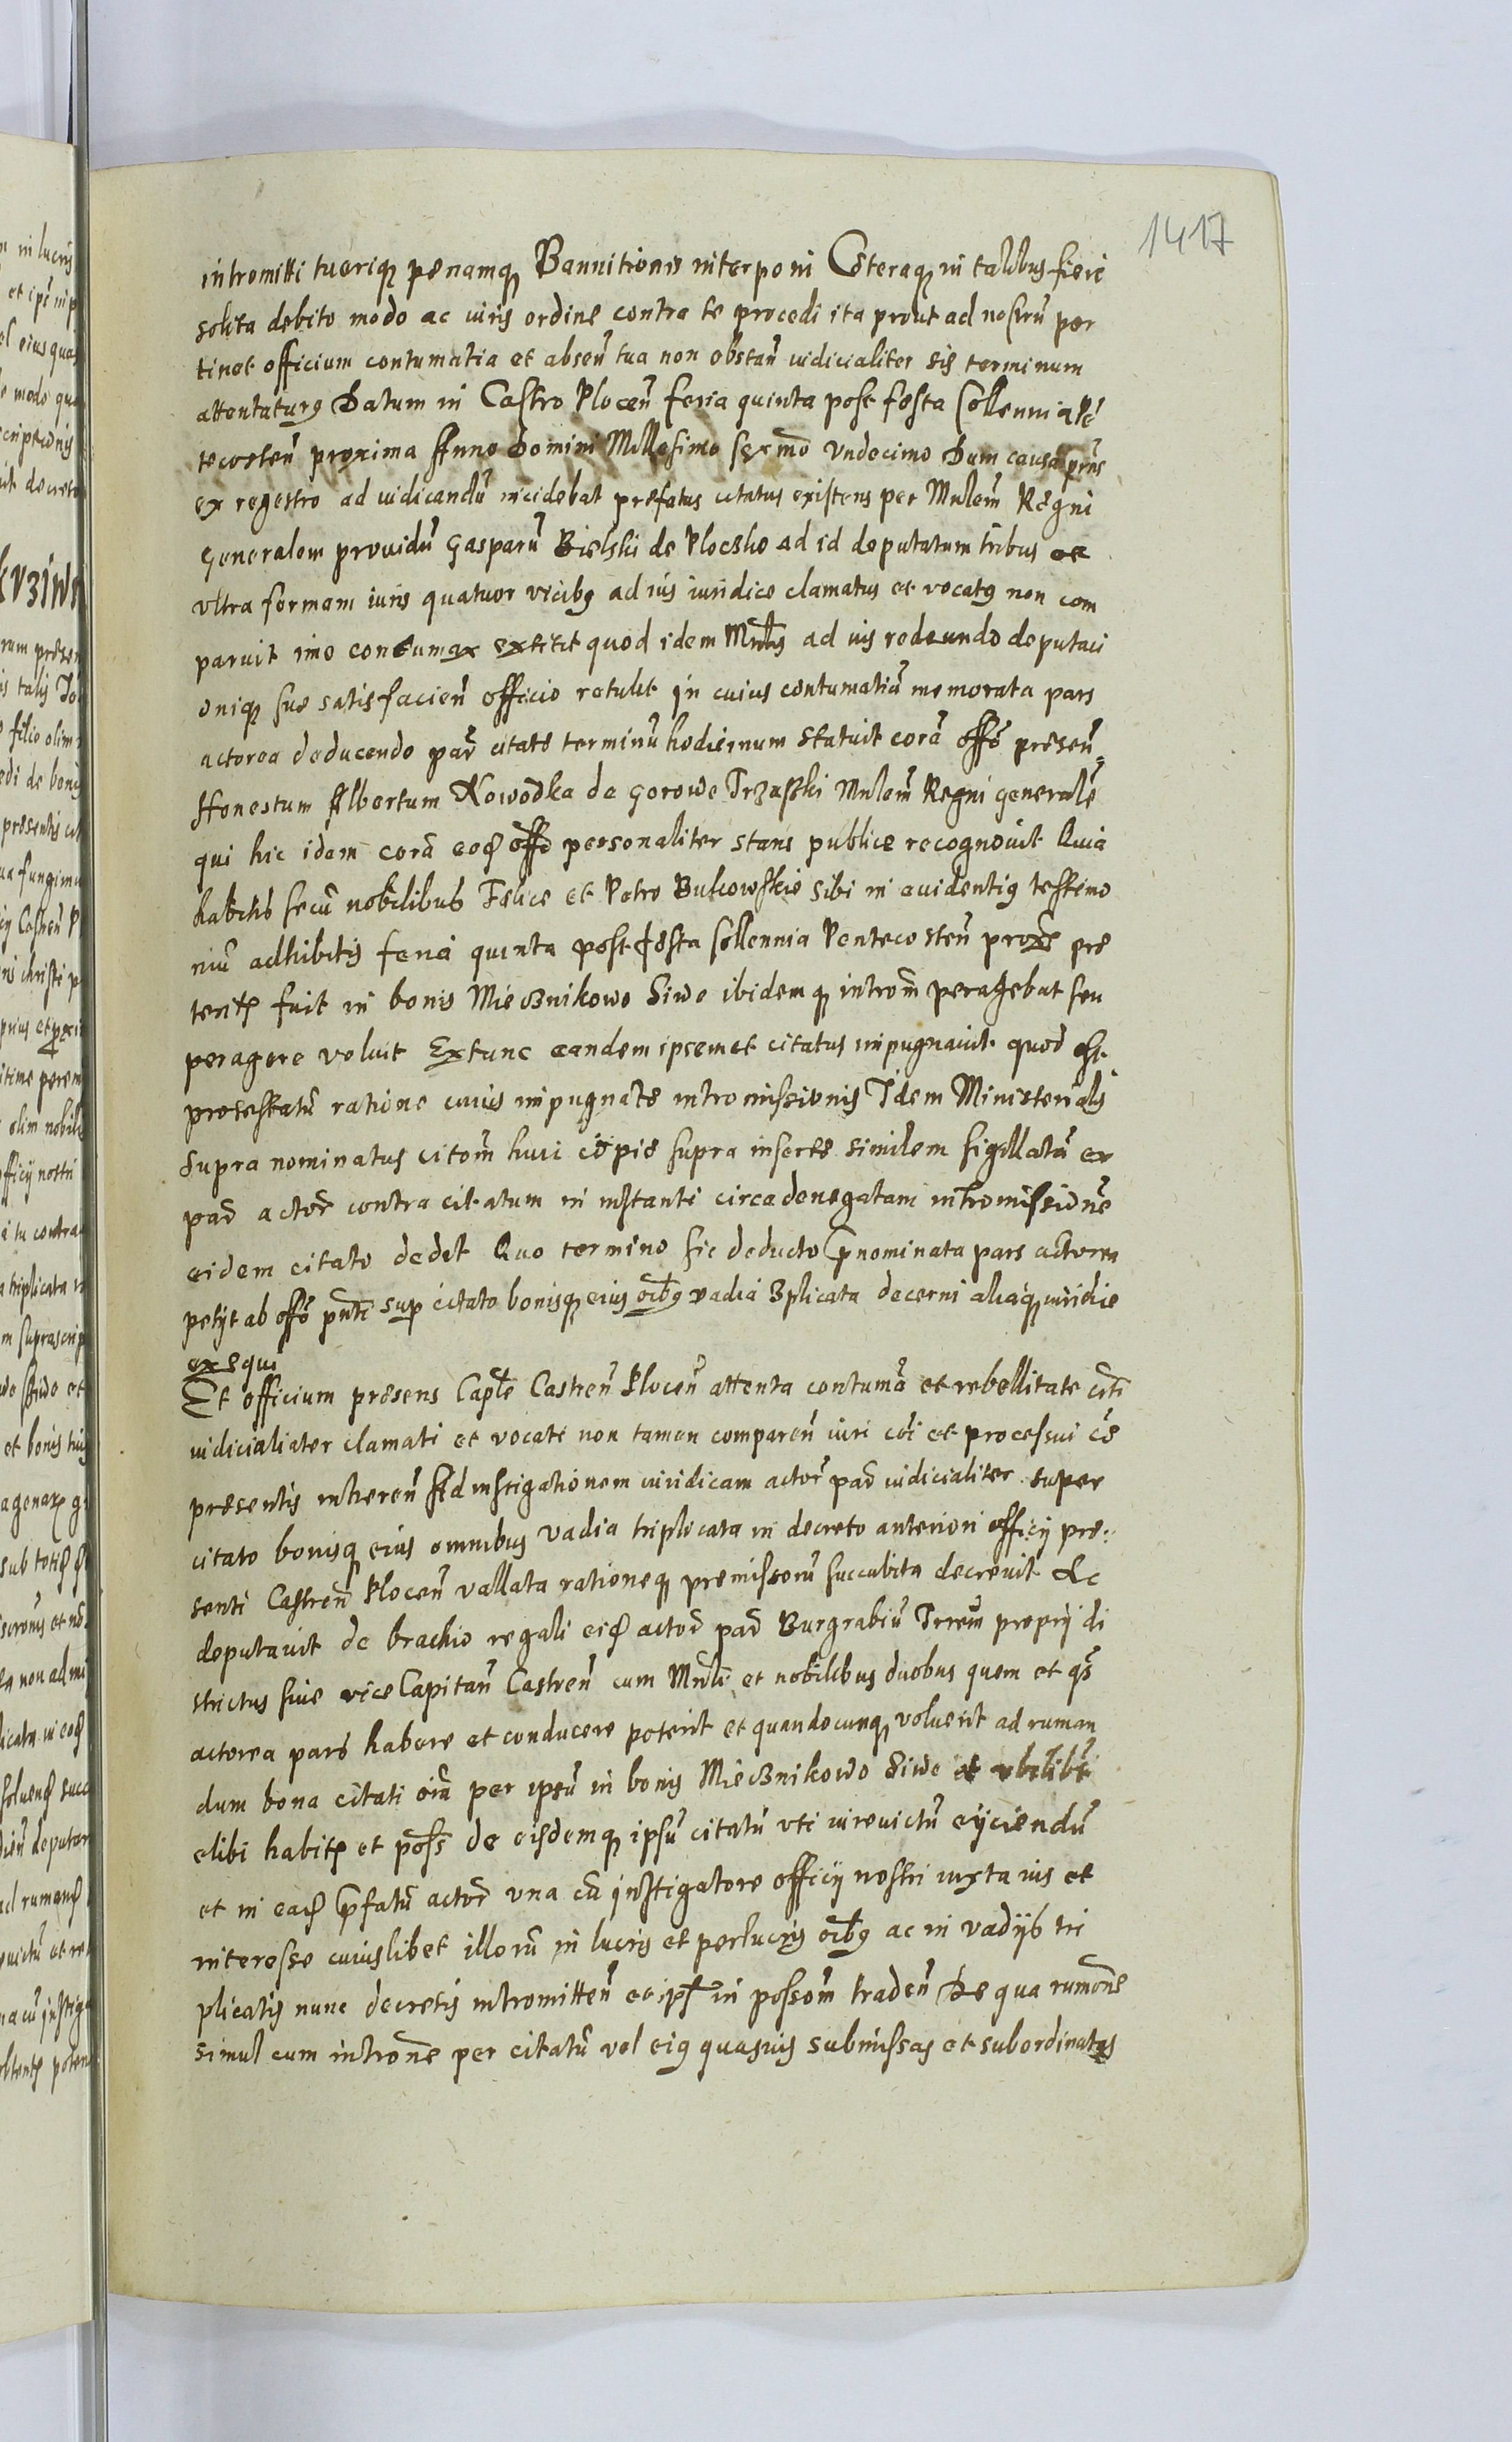 1417
intromitti tueriq₃ penamq₃ Bannitionis interponi Cęteraq₃ in talibus fieri
solita debito modo ac iuris ordine contra te procedi ita prout ad nostrū per
tinet officium contumatia et absen̄ tua non obstan̄ iudicialiter sis terminum
attentaturꝰ Datum in Castro Plocen̄ feria quinta post festa sollennia Pē
tecosten̄ proxima Anno Domini Millesimo sexmō Vndecimo Dum causa pn̄s
ex regestro ad iudicandū incidebat prefatus citatus existens per Mnlem̄ Regni
Generalem prouidū Gasparū Bielski de Plocsko ad id deputatum tribus et
vltra formam iuris quatuor vicibꝰ ad ius iuridice clamatus et vocatꝰ non com
paruit imo contumax extitit quod idem Mnlis ad ius redeundo deputaci
oniq₃ suę satisfacien̄ officio retulit in cuius contumatiā memorata pars
actorea deducendo par̄ citatę terminū hodiernum statuit corā offō presen̄
Honestum Albertum Nowodka de Gorowo Trzaski Mnlem̄ Regni generalē
qui hic idem corā eod̄ offō personaliter stans publice recognouit Quia
habitis secū nobilibus Felice et Petro Bukowskie sibi in euidentiꝰ testimo
niū adhibitis feria quinta post festa sollennia Pentecosten̄ proxē prę
terit fuit in bonis Miecznikowo Siwe ibidemq₃ introm̄ peragebat seu
peragere voluit Extunc eandem ipsemet citatus impugnauit quod est
protestatū ratione cuius impugnatę intromissionis Idem Ministerialis
supra nominatus citom̄ huic cōpię supra insertę similem sigillatā ex
par̄ actor̄ contra citatum in instanti circa denegatam intromissionē
eidem citato dedit Quo termino sic deducto p̄nominata pars actorea
petyt ab offō pn̄ti sup citato bonisq₃ eius oībꝰ vadia 3plicata decerni aliaq₃ iuridice
exequi
Et officium presens Caplē Castren̄ Plocen̄ attenta contumā et rebellitate citī
iudicialiater clamati et vocati non tamen comparen̄ iuri cōi et processui cę̄
presentis inheren̄ Ad instigationem iuridicam actor̄ par̄ iudicialiter super
citato bonisq₃ eius omnibus vadia triplicata in decreto anteriori officij pre
senti Castren̄ Plocen̄ vallata rationeq₃ premissorū succubita decreuit Ac
deputauit de brachio regali eid̄ actor̄ par̄ Burgrabiū Trrem̄ proprij di
strictus siue vice Capitan̄ Castren̄ cum Mnli et nobilibus duobus quem et qs̄
actorea pars habere et conducere poterit et quandocunq₃ voluerit ad ruman
dum bona citati oīa per ipsū in bonis Miecznikowo Siwe et vbilibi
elibi habit et poss̄ de eisdemq₃ ipsū citatū vti iureuictū eijciendū
et in ead̄ p̄fatū actor̄ vna cū instigatore officij nostri iuxta ius et
interesse cuiuslibet illorū in lucris et perlucris oībꝰ ac in vadijs tri
plicatis nunc decretis intromitten̄ et ips̄ in possom̄ traden̄ De qua rumōne
simul cum intronē per citatū vel eiꝰ quasuis submissas et subordinatas